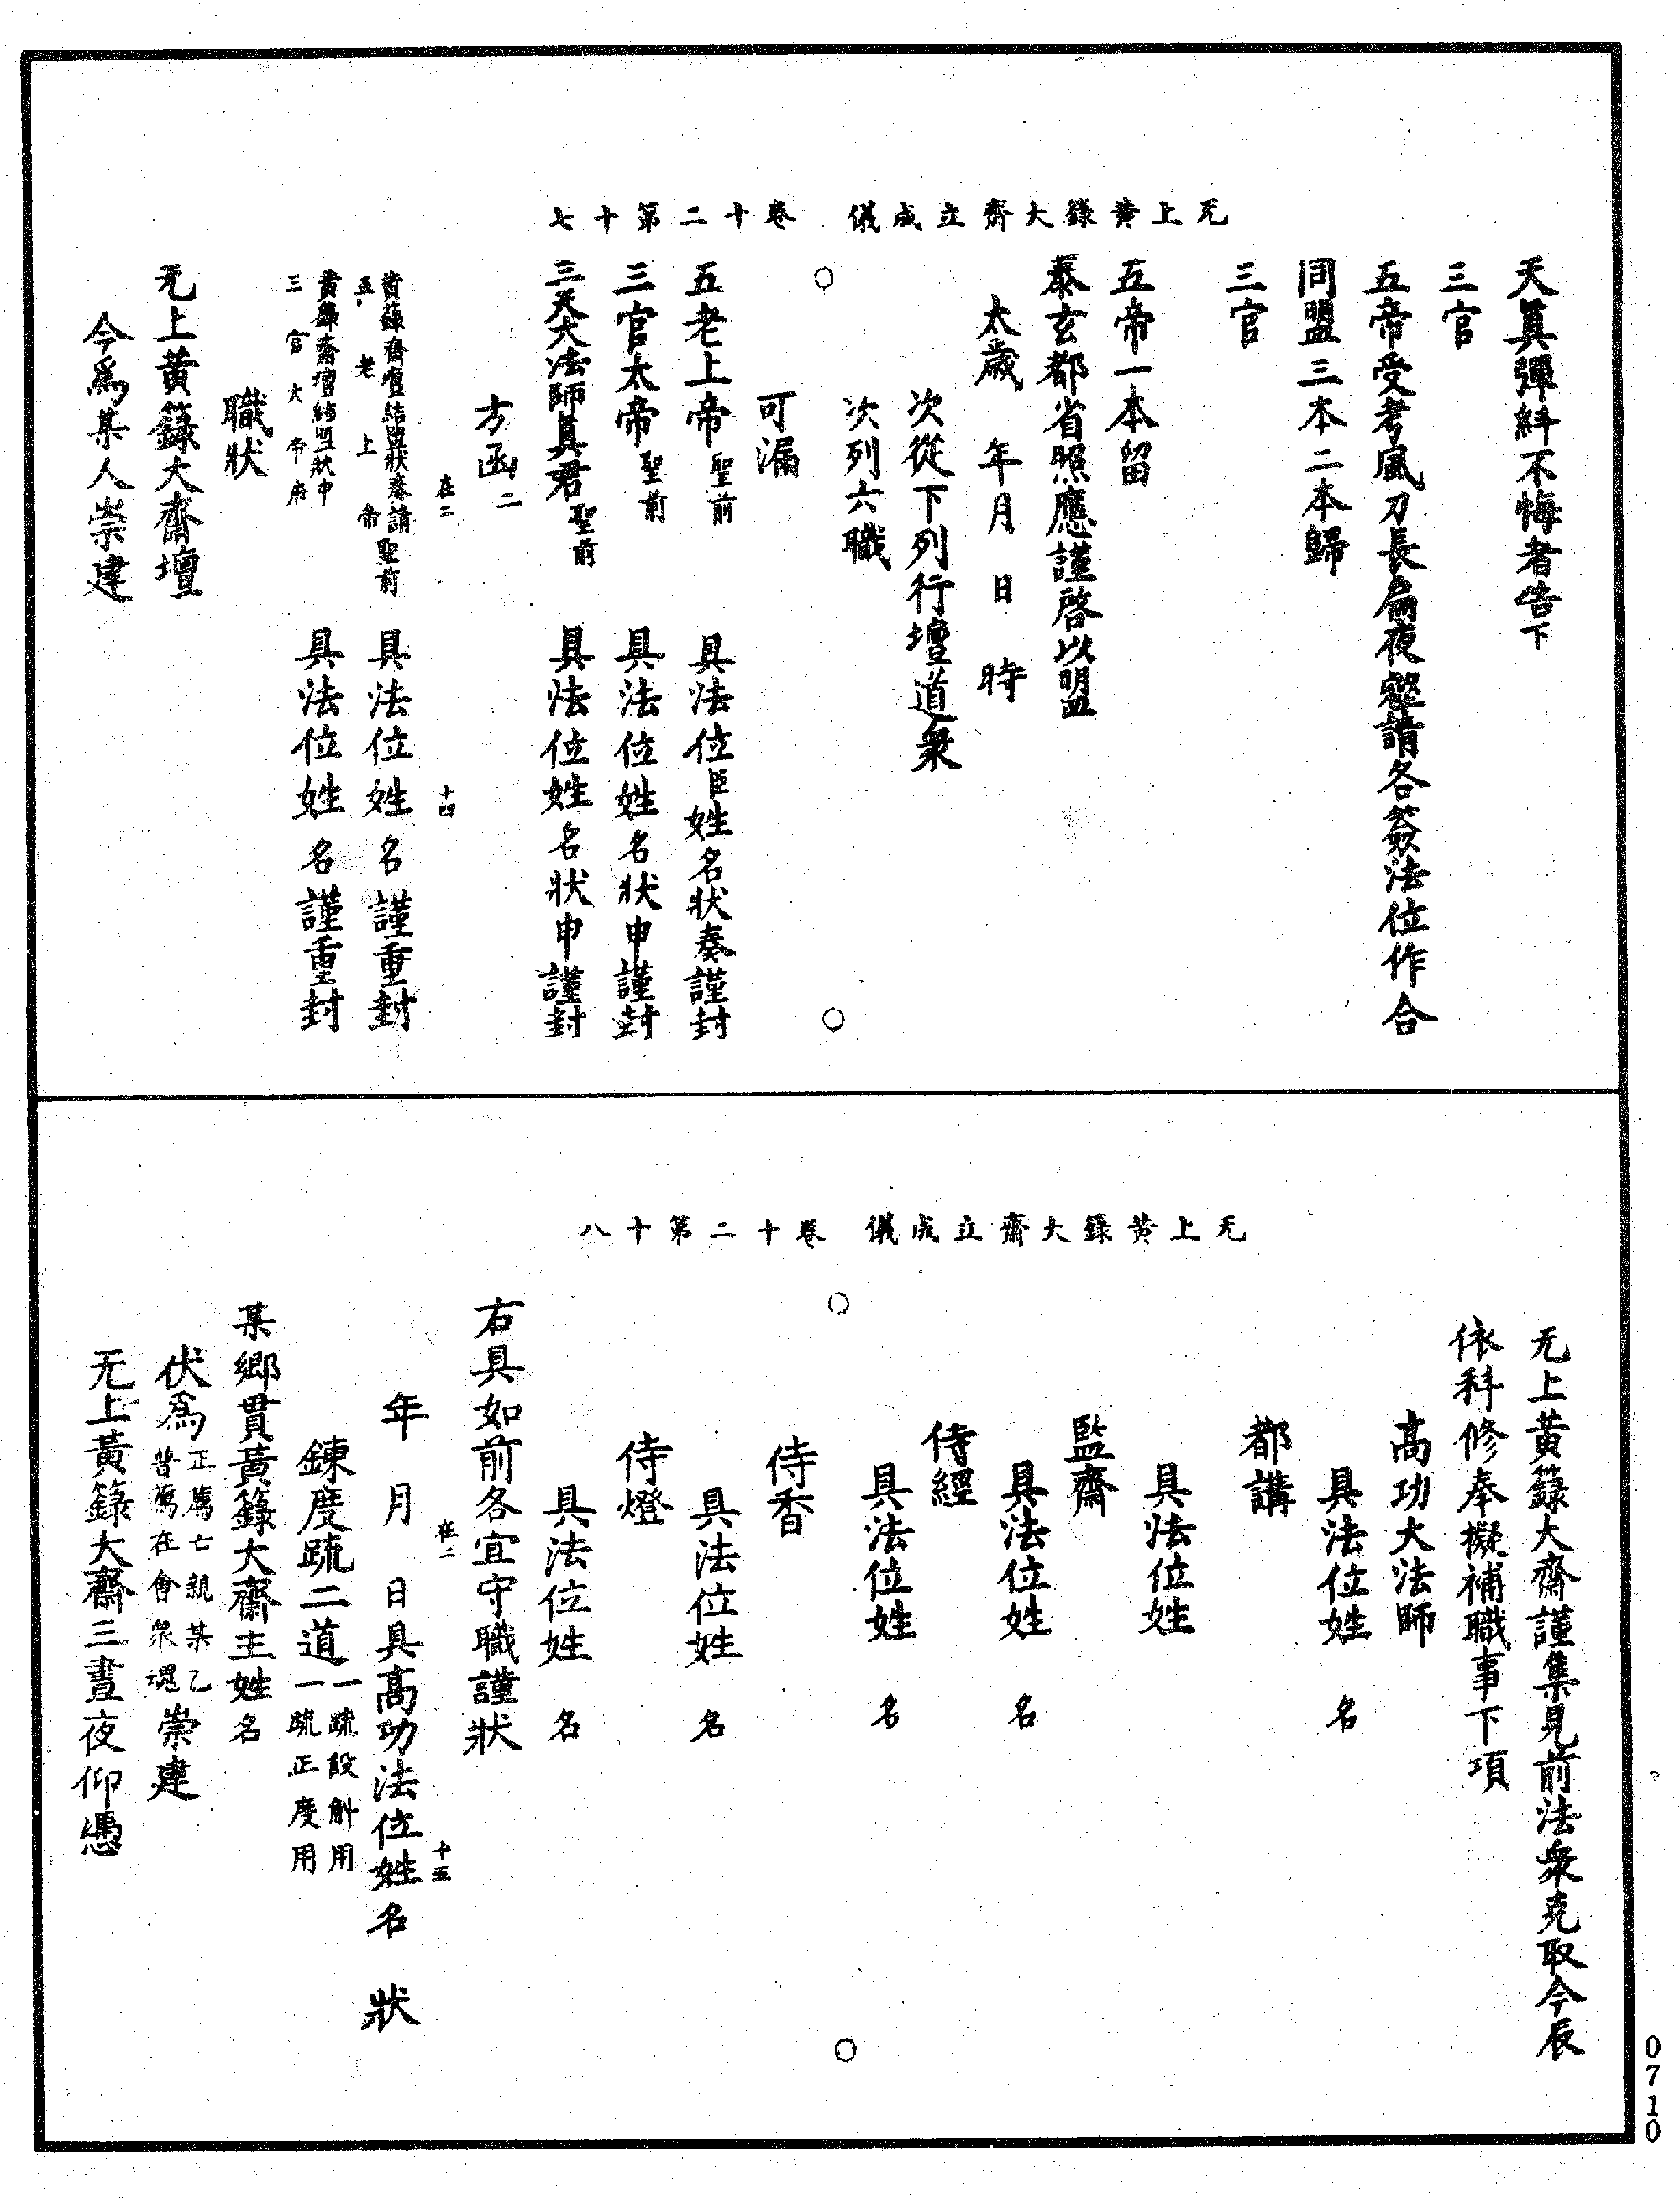 儀成立齋大籙黃上无
七十第二十卷
天眞彈糾不悔者告下
三官
五帝受考風刀長扁夜壑請各簽法位作合
同盟三本二本歸
三官
五帝一本留
泰玄都省照應謹啓以盟
太歲 年月 日 時
次從下列行壇道衆
次列六職
可漏
五老上帝 聖前 具法位臣姓名狀奏謹封
三官太帝 聖前 具法位姓名狀申謹封
三天大法師眞君 聖前 具法位姓名狀申謹封
方函二
在二 十四
黃籙齋壇結盟狀奏請
五老上帝 聖前 具法位姓名謹重封
黃籙齋壇結盟狀申
三官大帝府 具法位姓名謹重封
職狀
无上黃籙大齋壇
今爲某人崇建
儀成立齋大籙黃上无
八十第二十卷
无上黃籙大齋謹集見前法衆克取今辰
依科修奉擬補職事下項
高功大法師
具法位姓 名
都講
具法位姓
監齋
具法位姓 名
侍經
具法位姓 名
侍香
具法位姓 名
侍燈
具法位姓 名
右具如前各宜守職謹狀
在二 十五
年 月 日具高功法位姓名 狀
鍊度疏二道 一疏設斛用 一疏正度用
某鄉貫黃籙大齋主姓名
伏爲 正薦亡親某乙 普薦在會衆魂 崇建
无上黃籙大齋三晝夜仰憑
0710